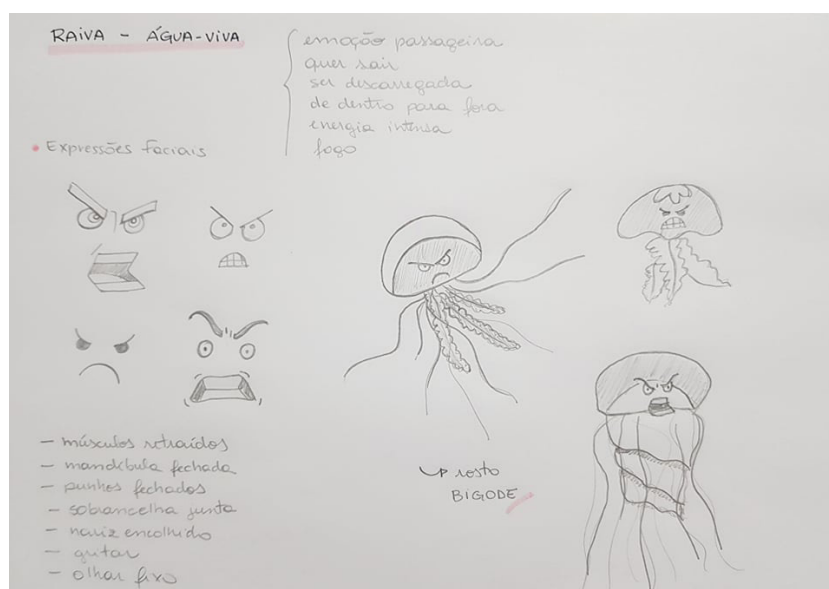 RAIVA - ÁGUA-VIVA
emoção passageira
quer sair
ser descarregada
de dentro para fora
energia intensa
fogo
• Expressões faciais
- músculos retraídos
- mandíbula fechada
- punhos fechados
- sobrancelha junta
- nariz encolhido
- gritar
- olhar fixo
rosto
BIGODE